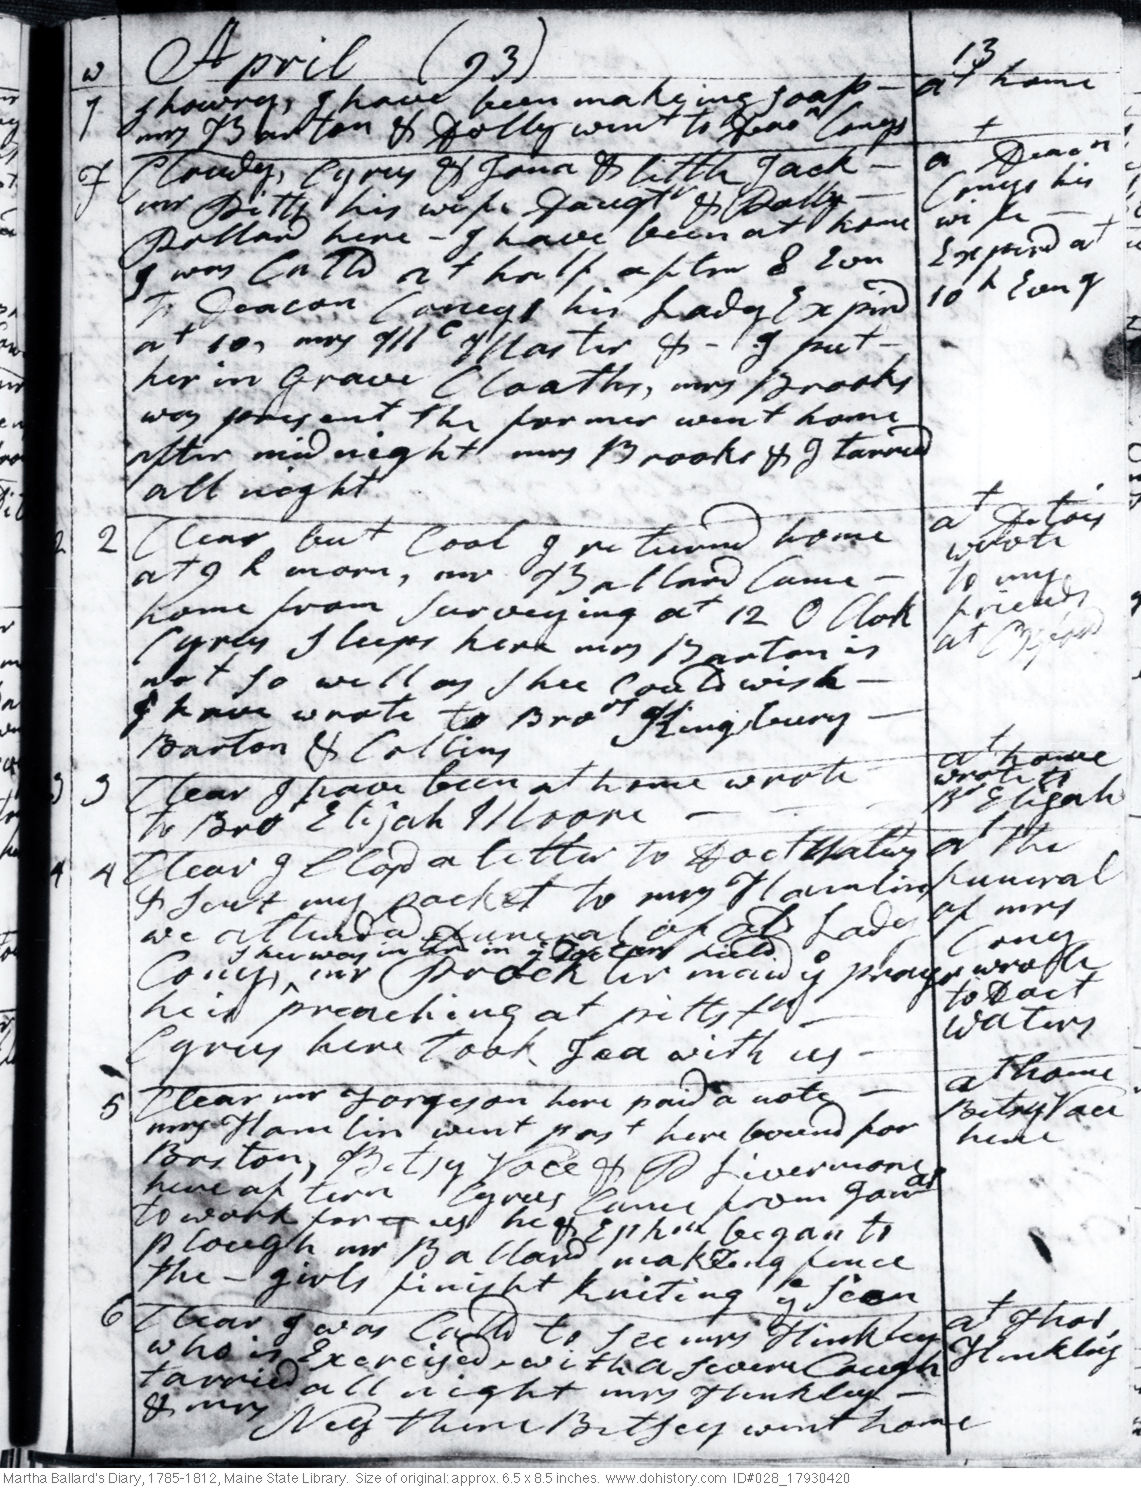 April (93)
13
w
7 showry, I have been makeing soap - at home
mrs Barton & Dolly went to Deacn Conys +
F Cloudy, Cyrus & Jona & little Jack - a Deacn
mr Pitts his wife Daugtr & Dolly - Conys his
Pollard here - I have been at home wife -
I was Calld at half after 8 Evn Expird at
to Deacon Conys his Lady Expird 10 h Evng
at 10, mrs McMaster & - I put -
her in Grave Cloaths, mrs Brooks
was present the former went home
after midnight mrs Brooks & I tarried
all night
2 2 Clear but Cool I returnd home at ditois
at 9 h morn, mr Ballard Came - wrote
home from Surveying at 12 O Clok to my
Cyrus Sleeps here mrs Barton is friends
not so well as shee Could wish - at Oxford
I have wrote to Brors Kingsbury -
Barton & Collins
3 3 Clear I have been at home wrote at home
to Bror Elijah Moore - - wrote to
Br Elijah
4 4 Clear I Closd a letter to Doct Waters at the
& sent my packet to mrs Hamlin funeral
we attend a funeral of Lady of mrs
shee was in tord in field Cony
Cony, mr Prock ter maid ÿ prayr wrote
he is preaching at pittstn to Doct
Cyrus here took Tea with us - Waters
5 Clear mr Forgeson here paid a note - at home
mrs Hamlin went past here bound for Betsy Vace
Boston, Betsy Vace & P Livermore here
here aftern Cyrus Came from
to work for us he & Ephm began to
plough mr Ballard makeing fence
the - girls finisht kniting ÿ Sean
6 Clear I was Calld to see mrs Hinkley at Thos
who is Exercised with a severe Cough Hinkleys
tarried all night mrs Hinkley -
& mrs Ney there Betsey went home
Martha Ballard's Diary, 1785-1812, Maine State Library. Size of original: approx. 6.5 x 8.5 inches. www.dohistory.com ID#028_17930420